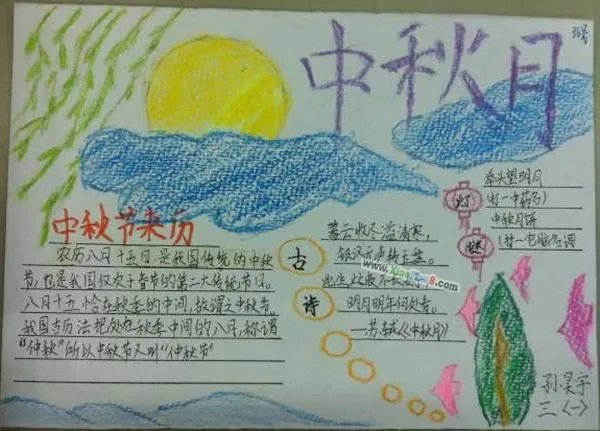 36号
中秋月
中秋节来历
农历八月十五日,是我国传统的中秋
节,也是我国仅次于春节的第二大传统节日。
八月十五恰在秋季的中间,故谓之中秋节。
我国古历法把处在秋季中间的八月,称谓
“仲秋”所以中秋节又叫“仲秋节”
古诗
暮云收尽溢清寒,
银汉无声转玉盘。
此生此夜不长好,
明月明年何处看。
—苏轼《中秋月》
灯谜
举头望明月
(打一中药名)
中秋月饼
(打一电脑名词
孙昊宇
三〈一〉